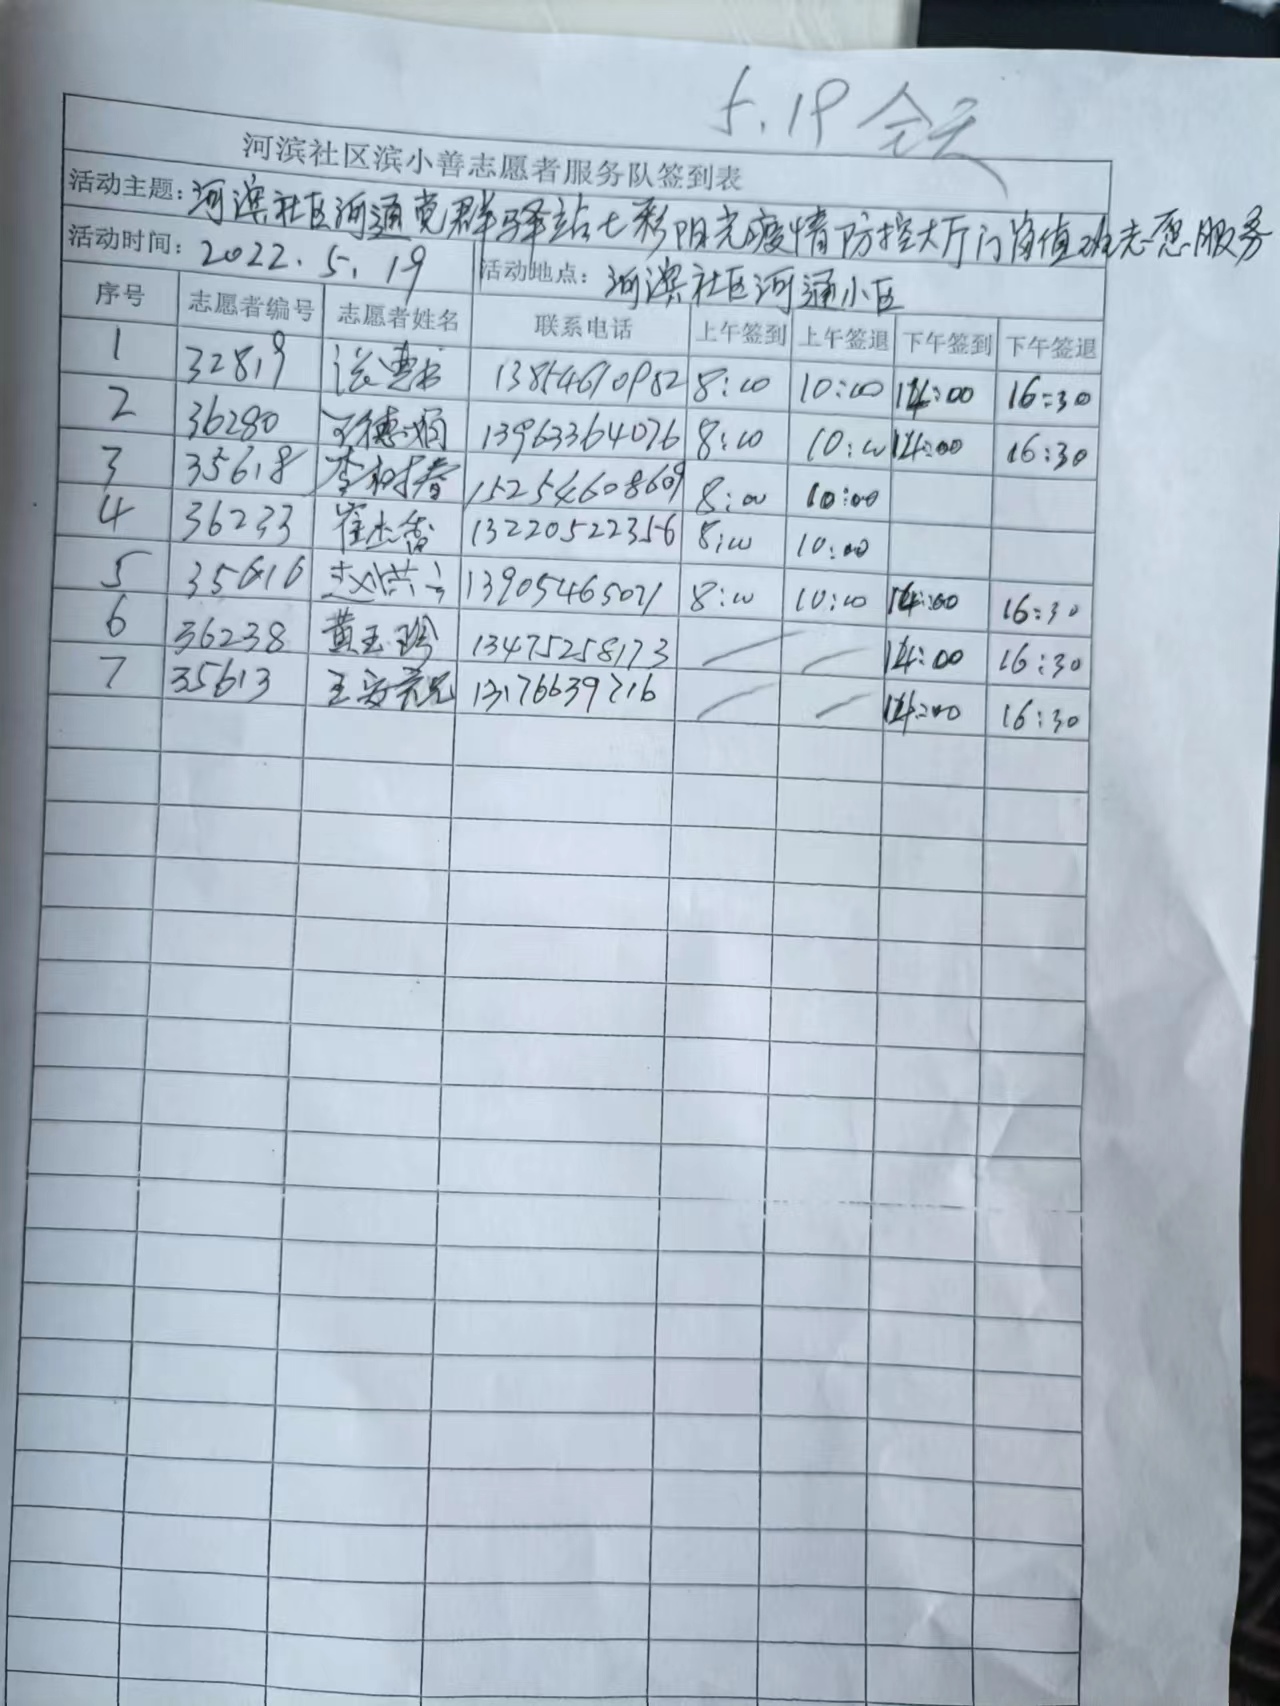 5.19 全天
河滨社区滨小善志愿者服务队签到表
活动主题：河滨社区河通党群驿站七彩阳光疫情防控大厅门岗值班志愿服务
活动时间：2022.5.19 活动地点：河滨社区河通小区
序号 志愿者编号 志愿者姓名 联系电话 上午签到 上午签退 下午签到 下午签退
1 32819 13854610952 8:00 10:00 14:00 16:30
2 36280 13963364076 8:00 10:00 14:00 16:30
3 35618 李树春 15254608609 8:00 10:00
4 36233 崔杰香 13220522356 8:00 10:00
5 35616 13905465021 8:00 10:00 14:00 16:30
6 36238 黄玉珍 13475258173 14:00 16:30
7 35613 13176639716 14:00 16:30